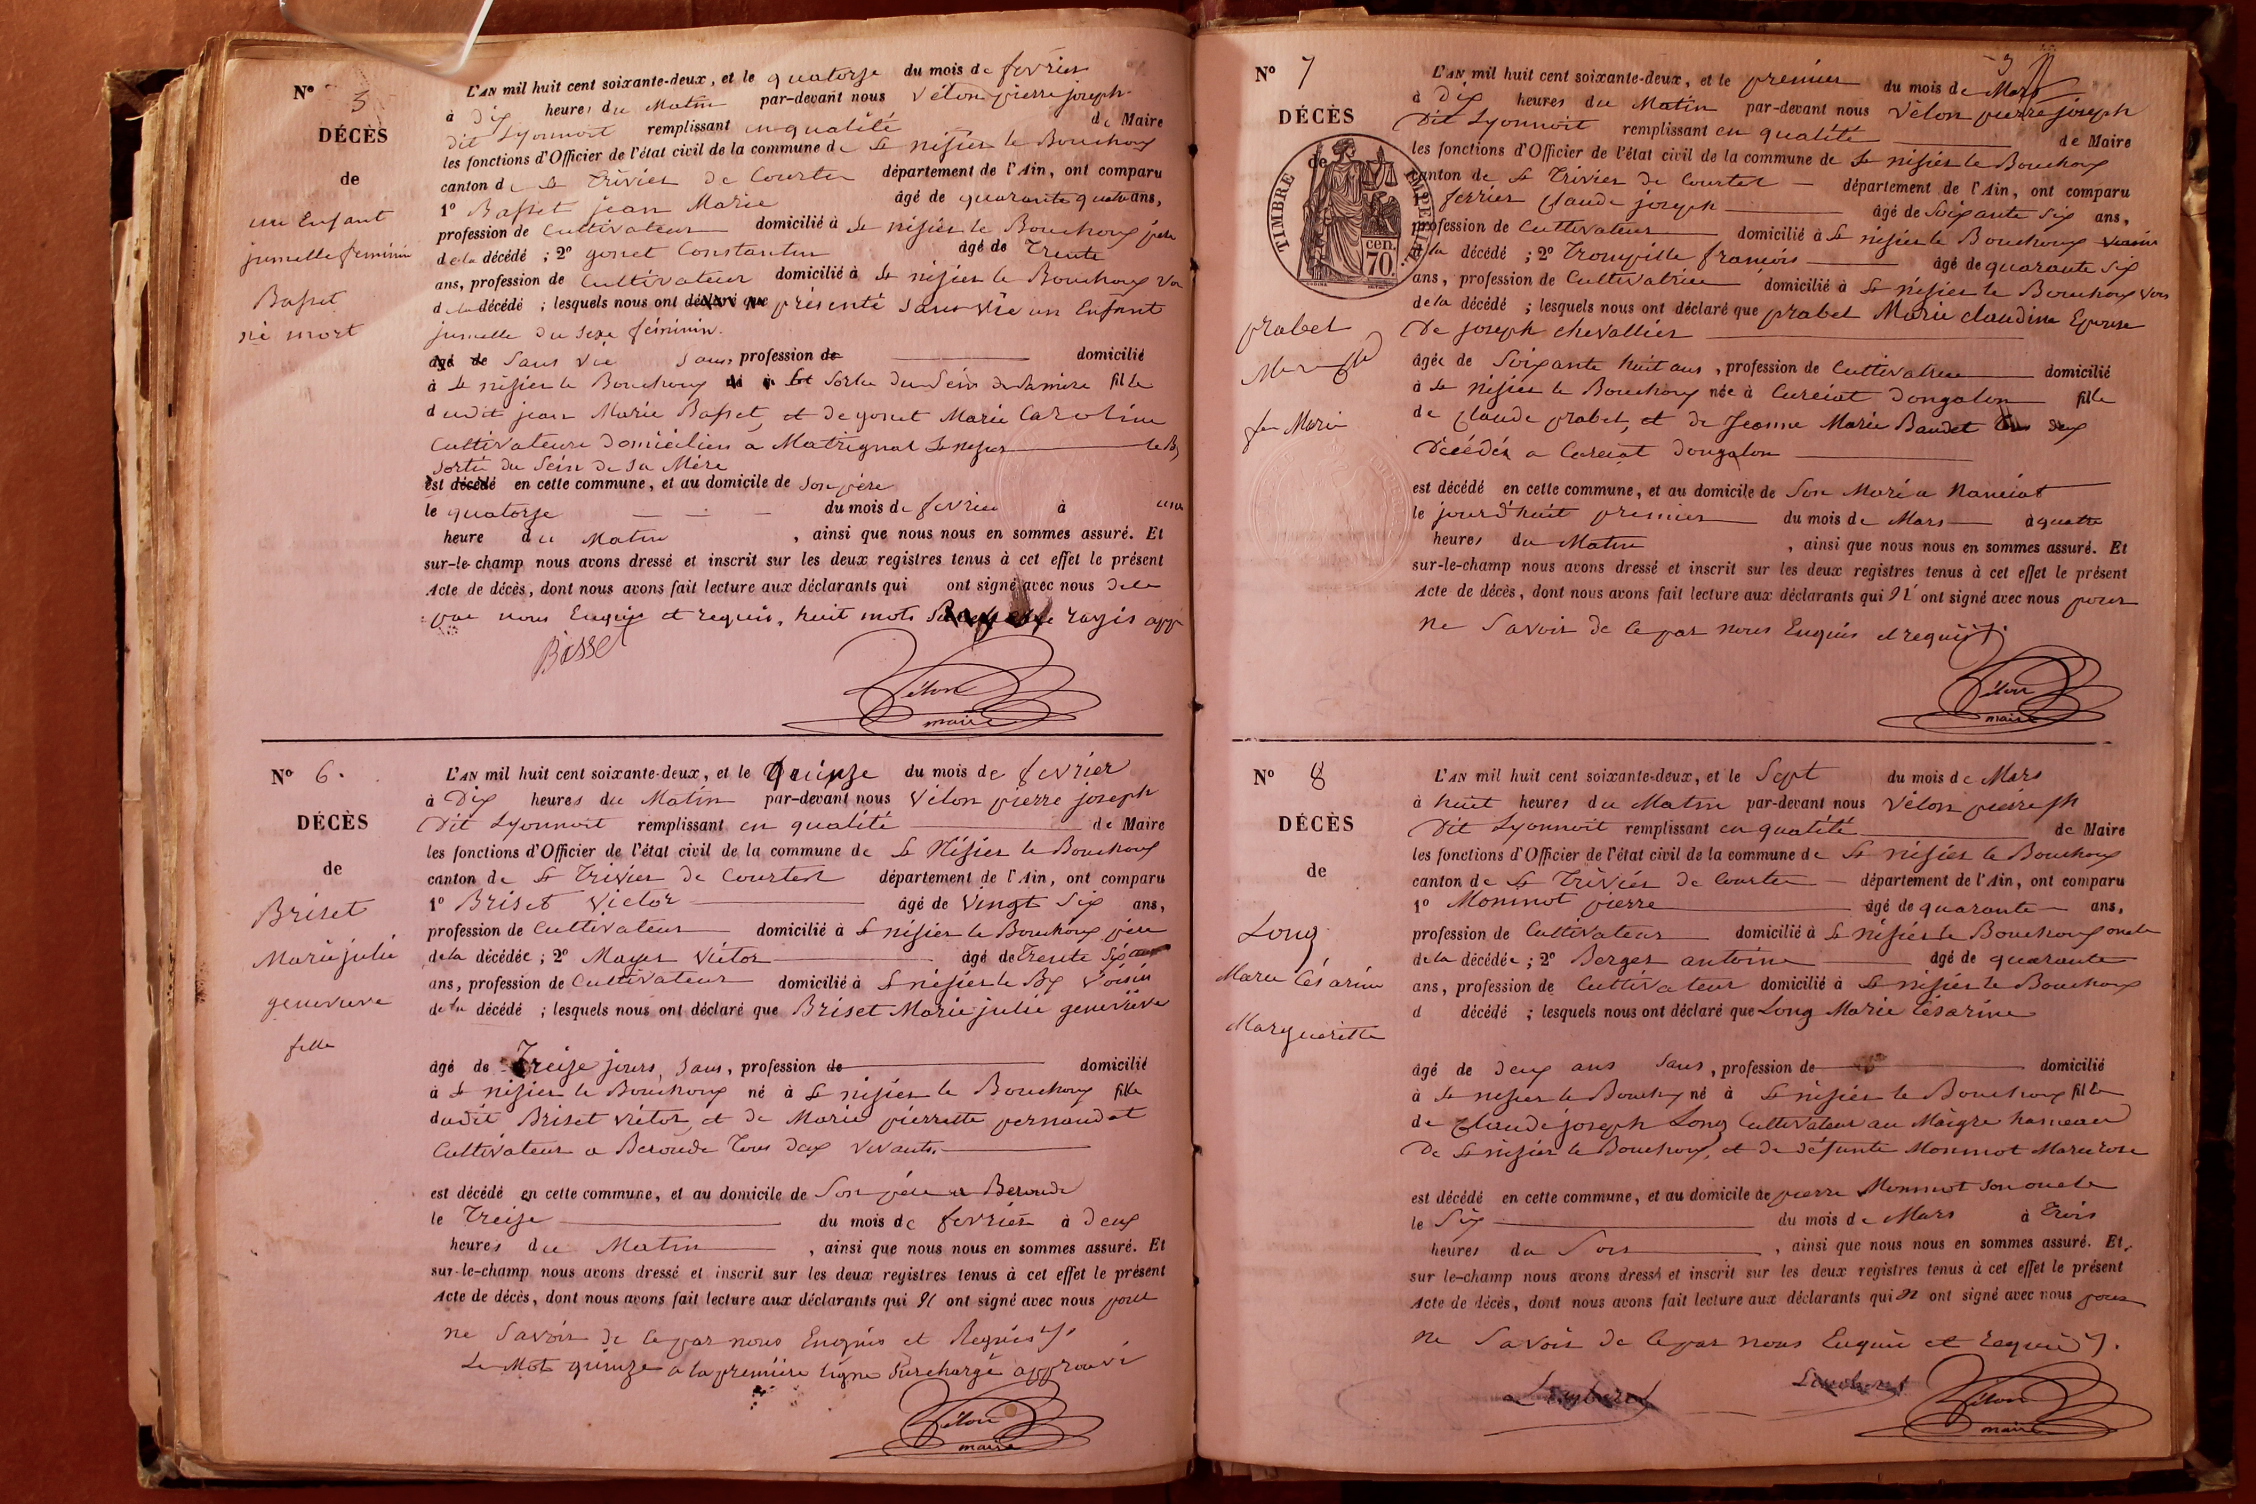 N° 5
DÉCÈS
de
un Enfant
jumelle feminin
Basset
né mort
L'AN mil huit cent soixante-deux, et le quatorze du mois de fevrier
à Dix heures du Matin par-devant nous Vélon pierre joseph
dit Lyonnoit remplissant en qualité de Maire
les fonctions d'Officier de l'état civil de la commune de St nisier le Bouchoux
canton de St Trivier de Courtes département de l'Ain, ont comparu
1° Basset jean Marie âgé de quarante quatre ans,
profession de Cultivateur domicilié à St nisier le Bouchoux père
de la décédé ; 2° gonet Constantin âgé de Trente
ans, profession de Cultivateur domicilié à St nisier le Bouchoux
de la décédé ; lesquels nous ont déclaré que présenté sans vie un Enfant
jumelle du sexe féminin.
agé de Sans vie sans profession de domicilié
à St nisier le Bouchoux Sortie du Sein de sa mère fille
dudit jean Marie Basset, et de gonet Marie Caroline
Cultivateurs domiciliés à Matrignat St nizier le Bx
Sortie du Sein de sa Mère
est décédé en cette commune, et au domicile de son père
le quatorze du mois de fevrier à une
heure du Matin , ainsi que nous nous en sommes assuré. Et
sur-le-champ nous avons dressé et inscrit sur les deux registres tenus à cet effet le présent
Acte de décès, dont nous avons fait lecture aux déclarants qui ont signé avec nous de ce
par nous Enquis et requis, huit mots rayés app
Basset
Vélon
maire
N° 6.
DÉCÈS
de
Briset
Marie julie
genevieve
fille
L'AN mil huit cent soixante-deux, et le Quinze du mois de fevrier
à Dix heures du Matin par-devant nous Vélon pierre joseph
Dit Lyonnoit remplissant en qualité de Maire
les fonctions d'Officier de l'état civil de la commune de St Nisier le Bouchoux
canton de St Trivier de Courtes département de l'Ain, ont comparu
1° Briset Victor âgé de vingt Six ans,
profession de Cultivateur domicilié à St nisier le Bouchoux père
de la décédée ; 2° Mayer Victor âgé de Trente Six
ans, profession de Cultivateur domicilié à St nisier le Bx Voisin
de la décédé ; lesquels nous ont déclaré que Briset Marie julie geneviève
âgé de Treize jours, Sans, profession de domicilié
à St nisier le Bouchoux né à St nisier le Bouchoux fille
dudit Briset Victor, et de Marie pierrette pernaudat
Cultivateur a Beroude Tous deux vivants.
est décédé en cette commune, et au domicile de Son père a Beroude
le Treize du mois de fevrier à Deux
heures du Matin , ainsi que nous nous en sommes assuré. Et
sur-le-champ nous avons dressé et inscrit sur les deux registres tenus à cet effet le présent
Acte de décès, dont nous avons fait lecture aux déclarants qui n' ont signé avec nous pour
ne Savoir de ce par nous Enquis et Requis
Le Mot quinze a la première ligne Surchargé approuvé
Vélon
maire
N° 7
DÉCÈS
de
TIMBRE IMPERIAL
70 cen.
prabel
fe Morin
L'AN mil huit cent soixante-deux, et le premier du mois de Mars
à Dix heures du Matin par-devant nous Vélon pierre joseph
Dit Lyonnoit remplissant en qualité de Maire
les fonctions d'Officier de l'état civil de la commune de St nisier le Bouchoux
canton de St Trivier de Courtes département de l'Ain, ont comparu
ferrier Claude joseph âgé de Soixante Six ans,
profession de Cultivateur domicilié à St nisier le Bouchoux Voisin
de la décédé ; 2° Tronville francois âgé de quarante Six
ans, profession de Cultivatrice domicilié à St nisier le Bouchoux Vois
de la décédé ; lesquels nous ont déclaré que prabel Marie claudine Epouse
De joseph chevallier
âgée de Soixante huit ans , profession de Cultivatrice domicilié
à St nisier le Bouchoux née à Curciat Dongalon fille
de Claude prabel, et de Jeanne Marie Baudet Tous deux
Décédés a Curciat Dongalon
est décédé en cette commune, et au domicile de Son Mari a Nanciat
le jourd'huit premier du mois de Mars à quatre
heures du Matin , ainsi que nous nous en sommes assuré. Et
sur-le-champ nous avons dressé et inscrit sur les deux registres tenus à cet effet le présent
Acte de décès, dont nous avons fait lecture aux déclarants qui n' ont signé avec nous pour
ne Savoir de ce par nous Enquis et requis
Vélon
maire
N° 8
DÉCÈS
de
Long
Marie Césarine
Marguerite
L'AN mil huit cent soixante-deux, et le Sept du mois de Mars
à huit heures du Matin par-devant nous Vélon pierre jph
Dit Lyonnoit remplissant en qualité de Maire
les fonctions d'Officier de l'état civil de la commune de St nisier le Bouchoux
canton de St Trivier de Courtes département de l'Ain, ont comparu
1° Monnot pierre âgé de quarante ans,
profession de Cultivateur domicilié à St nisier le Bouchoux oncle
de la décédée ; 2° Berger antoine âgé de quarante
ans, profession de Cultivateur domicilié à St nisier le Bouchoux
d décédé ; lesquels nous ont déclaré que Long Marie Césarine
âgé de deux ans Sans , profession de domicilié
à St nisier le Bouchoux né à St nisier le Bouchoux fille
de Claude joseph Long Cultivateur au Maigre hameau
De St nisier le Bouchoux, et de défunte Monnot Marie rose
est décédé en cette commune, et au domicile de pierre Monnot Son oncle
le Six du mois de Mars à Trois
heures du Soir , ainsi que nous nous en sommes assuré. Et
sur le-champ nous avons dressé et inscrit sur les deux registres tenus à cet effet le présent
Acte de décès, dont nous avons fait lecture aux déclarants qui n' ont signé avec nous pour
ne Savoir de ce par nous Enquis et requis
Vélon
maire